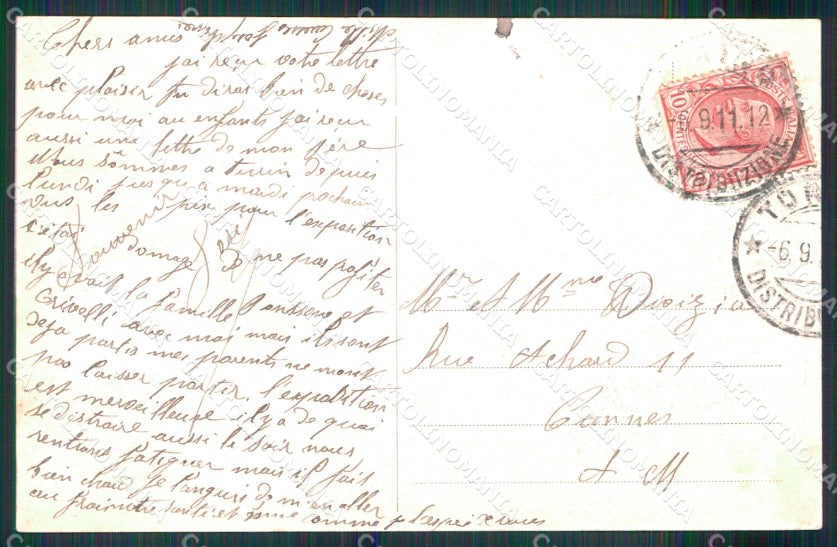 Chers amis
j'ai reçu votre lettre
avec plaisir tu diras bien de choses
pour moi au enfants j'ai reçu
aussi une lettre de mon père
Nous sommes a turin depuis
lundi jusqu'a mardi prochain
pour l'exposition
c'etai domage de ne pas profiter
il y avait la famille et
Crivelli avec moi mais ils sont
deja partis mes parents ne m'ont
pas laisser partir l'exposition
est merveilleuse il y a de quoi
se distraire aussi le soir nous
rentrons fatiguer mais il fait
bien chaud je languis de m'en aller
au
Souvenir
Mr et Mme
Rue Achard 11
Cannes
A M
10
CENT
POSTE ITALIANE
-6.9.11.12
DISTRIBUZIONE
TOR
-6.9.
DISTRIBU
CARTOLINOMANIA